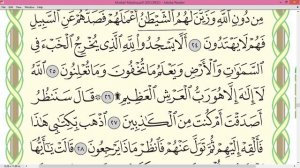 مِن دُونِ ٱللَّهِ وَزَيَّنَ لَهُمُ ٱلشَّيْطَٰنُ أَعْمَٰلَهُمْ فَصَدَّهُمْ عَنِ ٱلسَّبِيلِ
فَهُمْ لَا يَهْتَدُونَ ٢٤ أَلَّا يَسْجُدُوا۟ لِلَّهِ ٱلَّذِى يُخْرِجُ ٱلْخَبْءَ فِى
ٱلسَّمَٰوَٰتِ وَٱلْأَرْضِ وَيَعْلَمُ مَا تُخْفُونَ وَمَا تُعْلِنُونَ ٢٥ ٱللَّهُ
لَآ إِلَٰهَ إِلَّا هُوَ رَبُّ ٱلْعَرْشِ ٱلْعَظِيمِ ۩ ٢٦ قَالَ سَنَنظُرُ
أَصَدَقْتَ أَمْ كُنتَ مِنَ ٱلْكَٰذِبِينَ ٢٧ ٱذْهَب بِّكِتَٰبِى هَٰذَا
فَأَلْقِهْ إِلَيْهِمْ ثُمَّ تَوَلَّ عَنْهُمْ فَٱنظُرْ مَاذَا يَرْجِعُونَ ٢٨ قَالَتْ يَٰٓأَيُّهَا